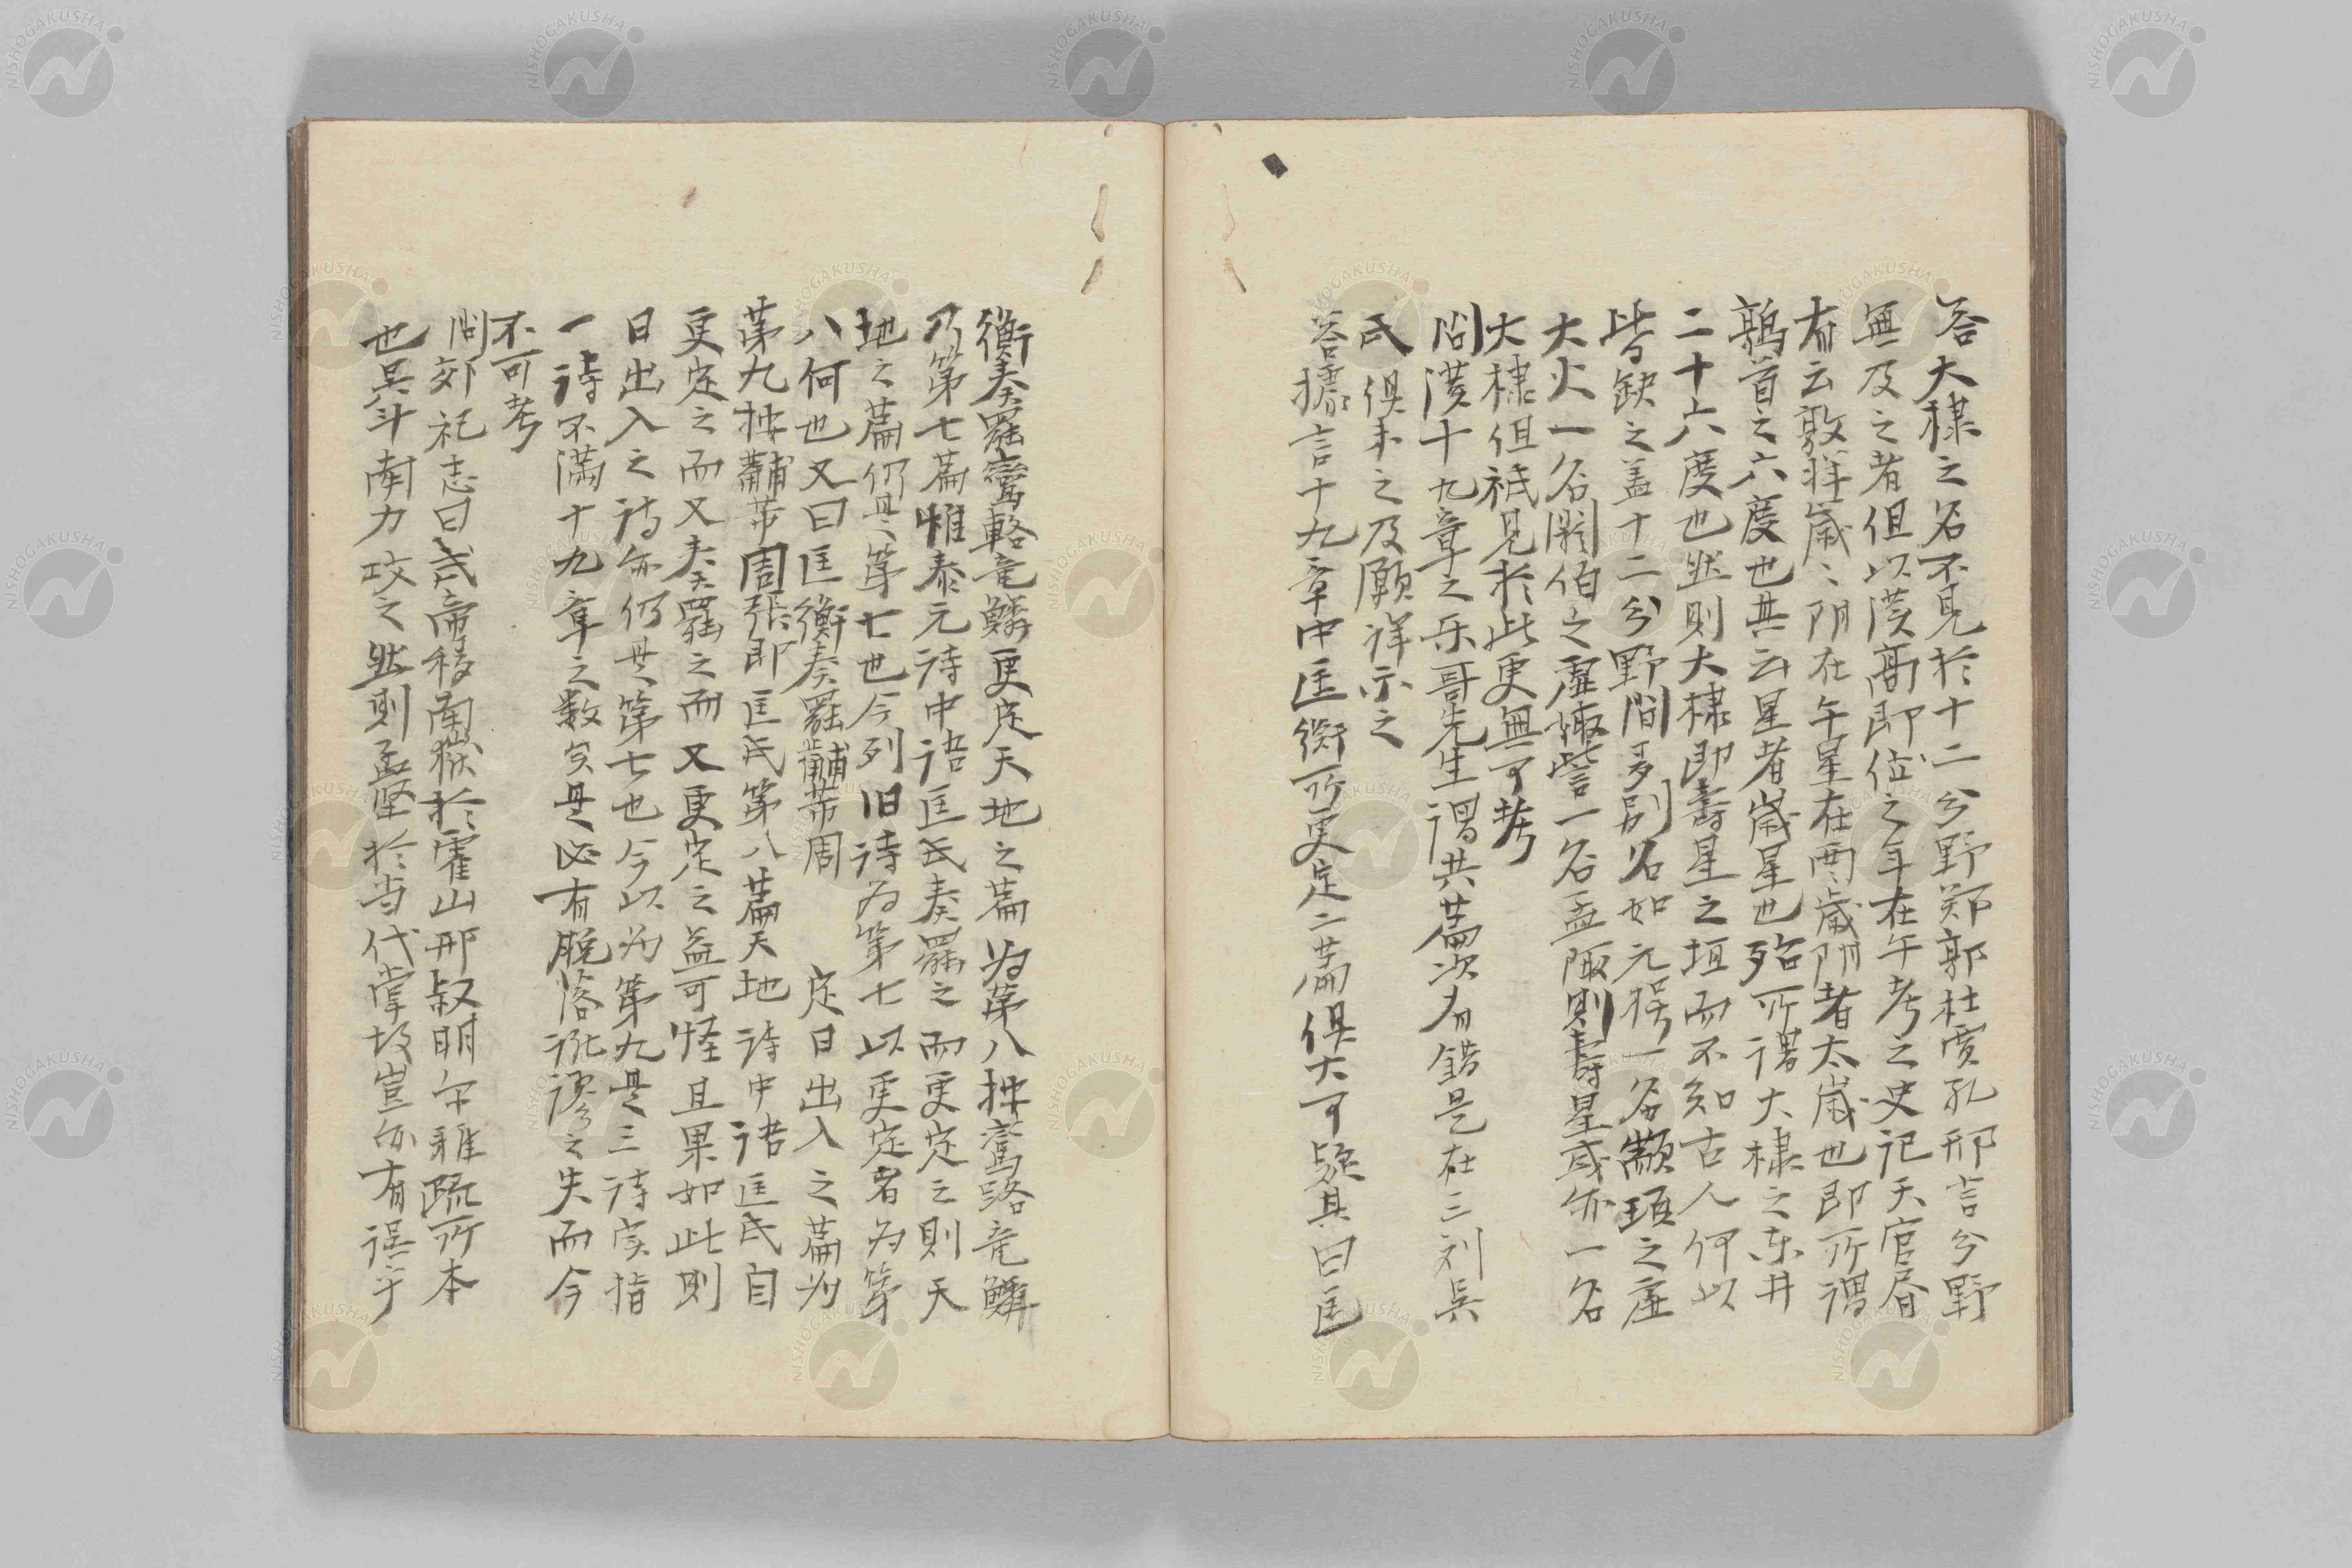 答大棣之名不見於十二兮野鄭郭杜賈孔邢言兮野
無及之者但以漢高即位之年在午考之史記天官書
有云敦牂歲〻阴在午星在酉歲阴者太歲也即所謂
鶉首之六度也其云星者歲星也殆所謂大棣之东井
二十六度也然则大棣即壽星之垣而不知古人何以
皆缺之盖十二兮野間多別名如元枵一名顓頊之虚
大火一名閼伯之虚娵訾一名孟陬則壽星或亦一名
大棣但祗見於此更無可考
问漢十九章之乐哥先生謂其篇次有錯是在三刘吴
氏俱未之及願詳示之
荅據言十九章中匡衡所更定二篇俱大可疑其曰匡
衡奏罷鸞輅竜鱗更定天地之篇为第八按鸞路竜鱗
乃第七篇惟泰元诗中語匡氏奏罷之而更定之則天
地之篇仍是第七也今列旧诗为第七以更定者为第
八何也又曰匡衡奏罷黼黻周 定日出入之篇为
第九按黼黻周張即匡氏第八篇天地诗中语匡氏自
更定之而又奏罷之而又更定之益可怪且果如此则
日出入之诗亦仍是第七也今以为第九是三诗实指
一诗不滿十九章之数矣是必有脱落訛謬之失而今
不可考
问郊祀志曰武帝移南嶽於霍山邢叔明尔雅疏所本
也吴斗南力攻之然則孟坚於当代掌故豈亦有误乎